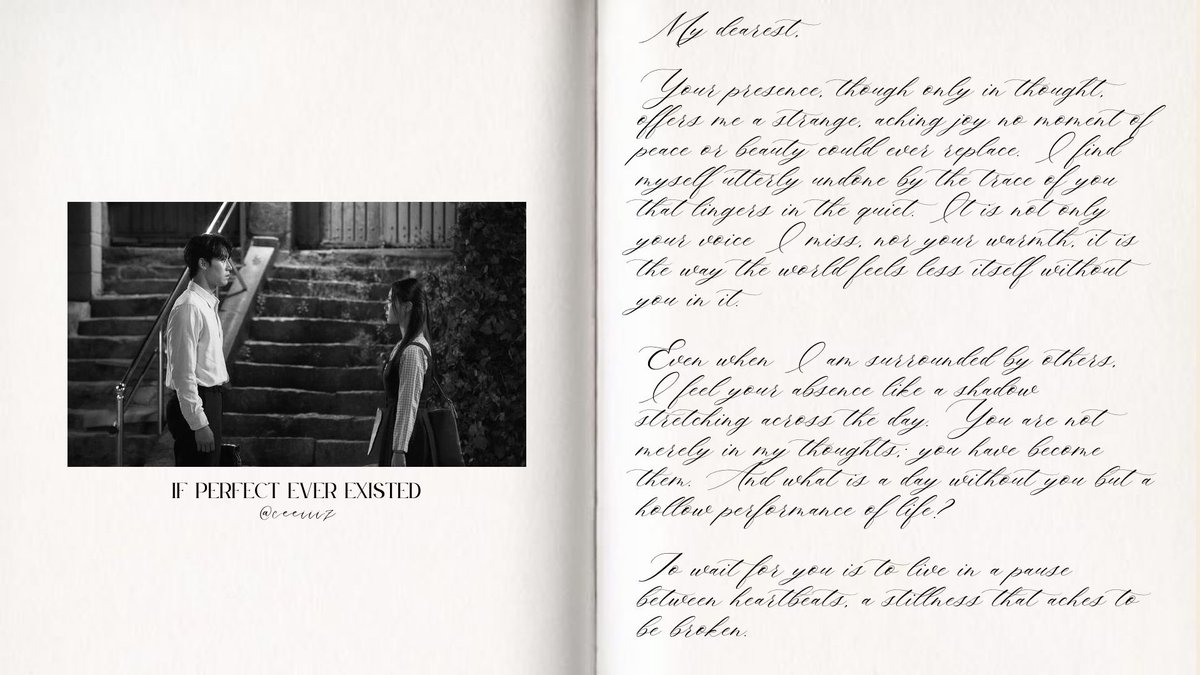 IF PERFECT EVER EXISTED
My dearest,
Your presence, though only in thought,
offers me a strange, aching joy no moment of
peace or beauty could ever replace. I find
myself utterly undone by the trace of you
that lingers in the quiet. It is not only
your voice I miss, nor your warmth, it is
the way the world feels less itself without
you in it.
Even when I am surrounded by others,
I feel your absence like a shadow
stretching across the day. You are not
merely in my thoughts; you have become
them. And what is a day without you but a
hollow performance of life?
To wait for you is to live in a pause
between heartbeats, a stillness that aches to
be broken.